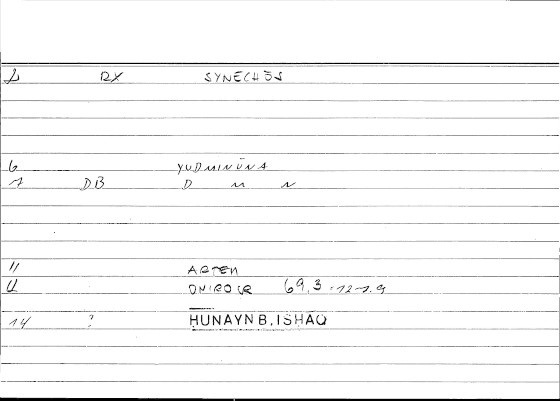 1 RX SYNECHŌS
6 YUDMINŪNA
7 DB D M N
11 ARTEM
12 ONIROCR 69,3 -12-1.9
14 ? HUNAYN B. ISHAQ